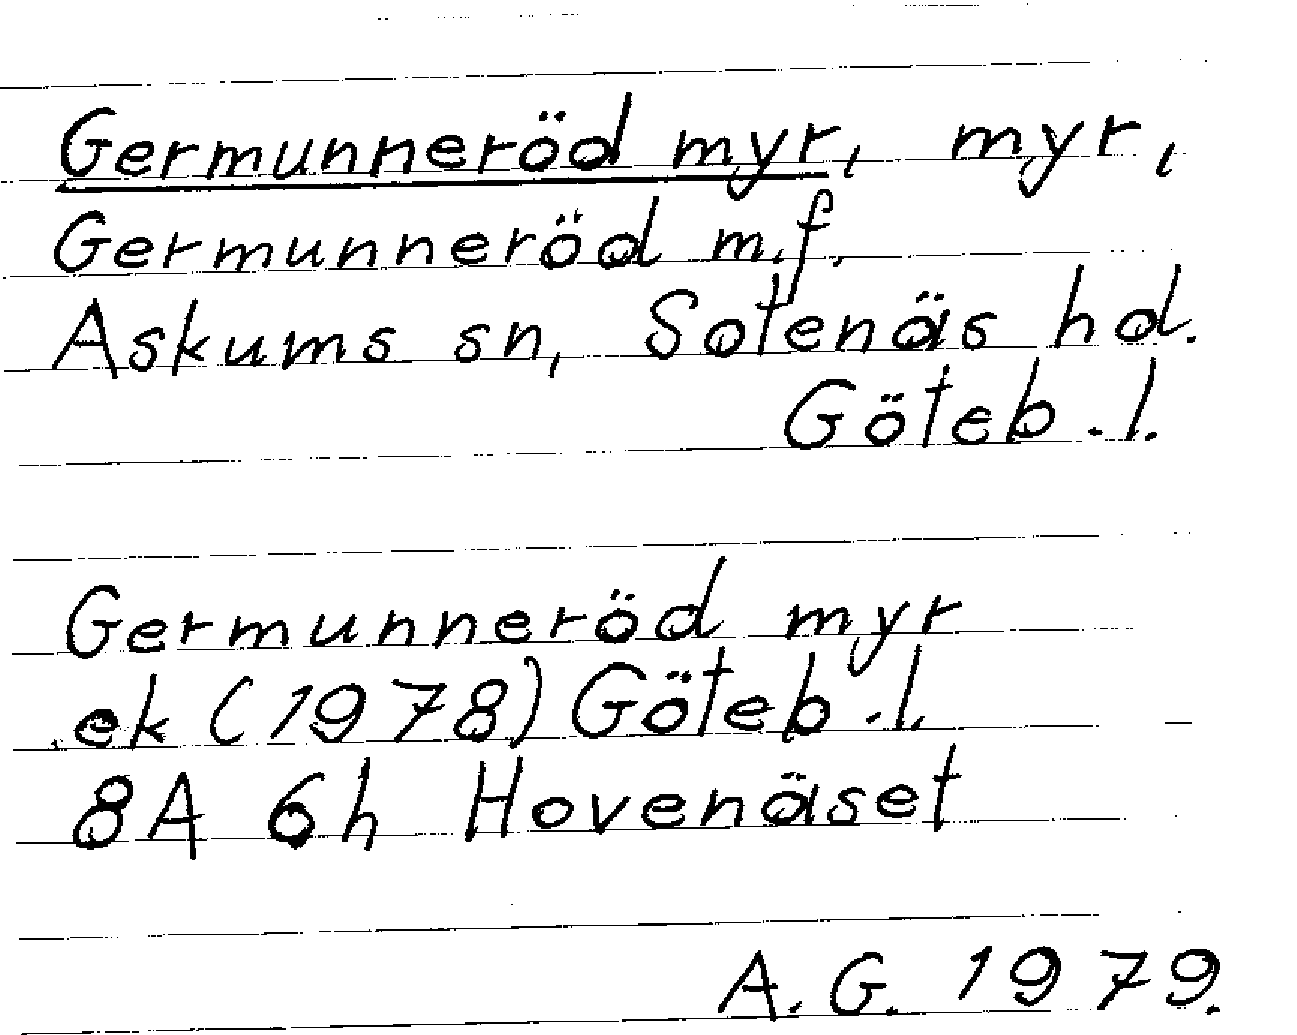 Germunneröd myr, myr,
Germunneröd m.f.
Askums sn, Sotenäs hd.
Göteb.l.
Germunneröd myr
ek (1978) Göteb.l.
8A 6h Hovenäset
A.G. 1979.